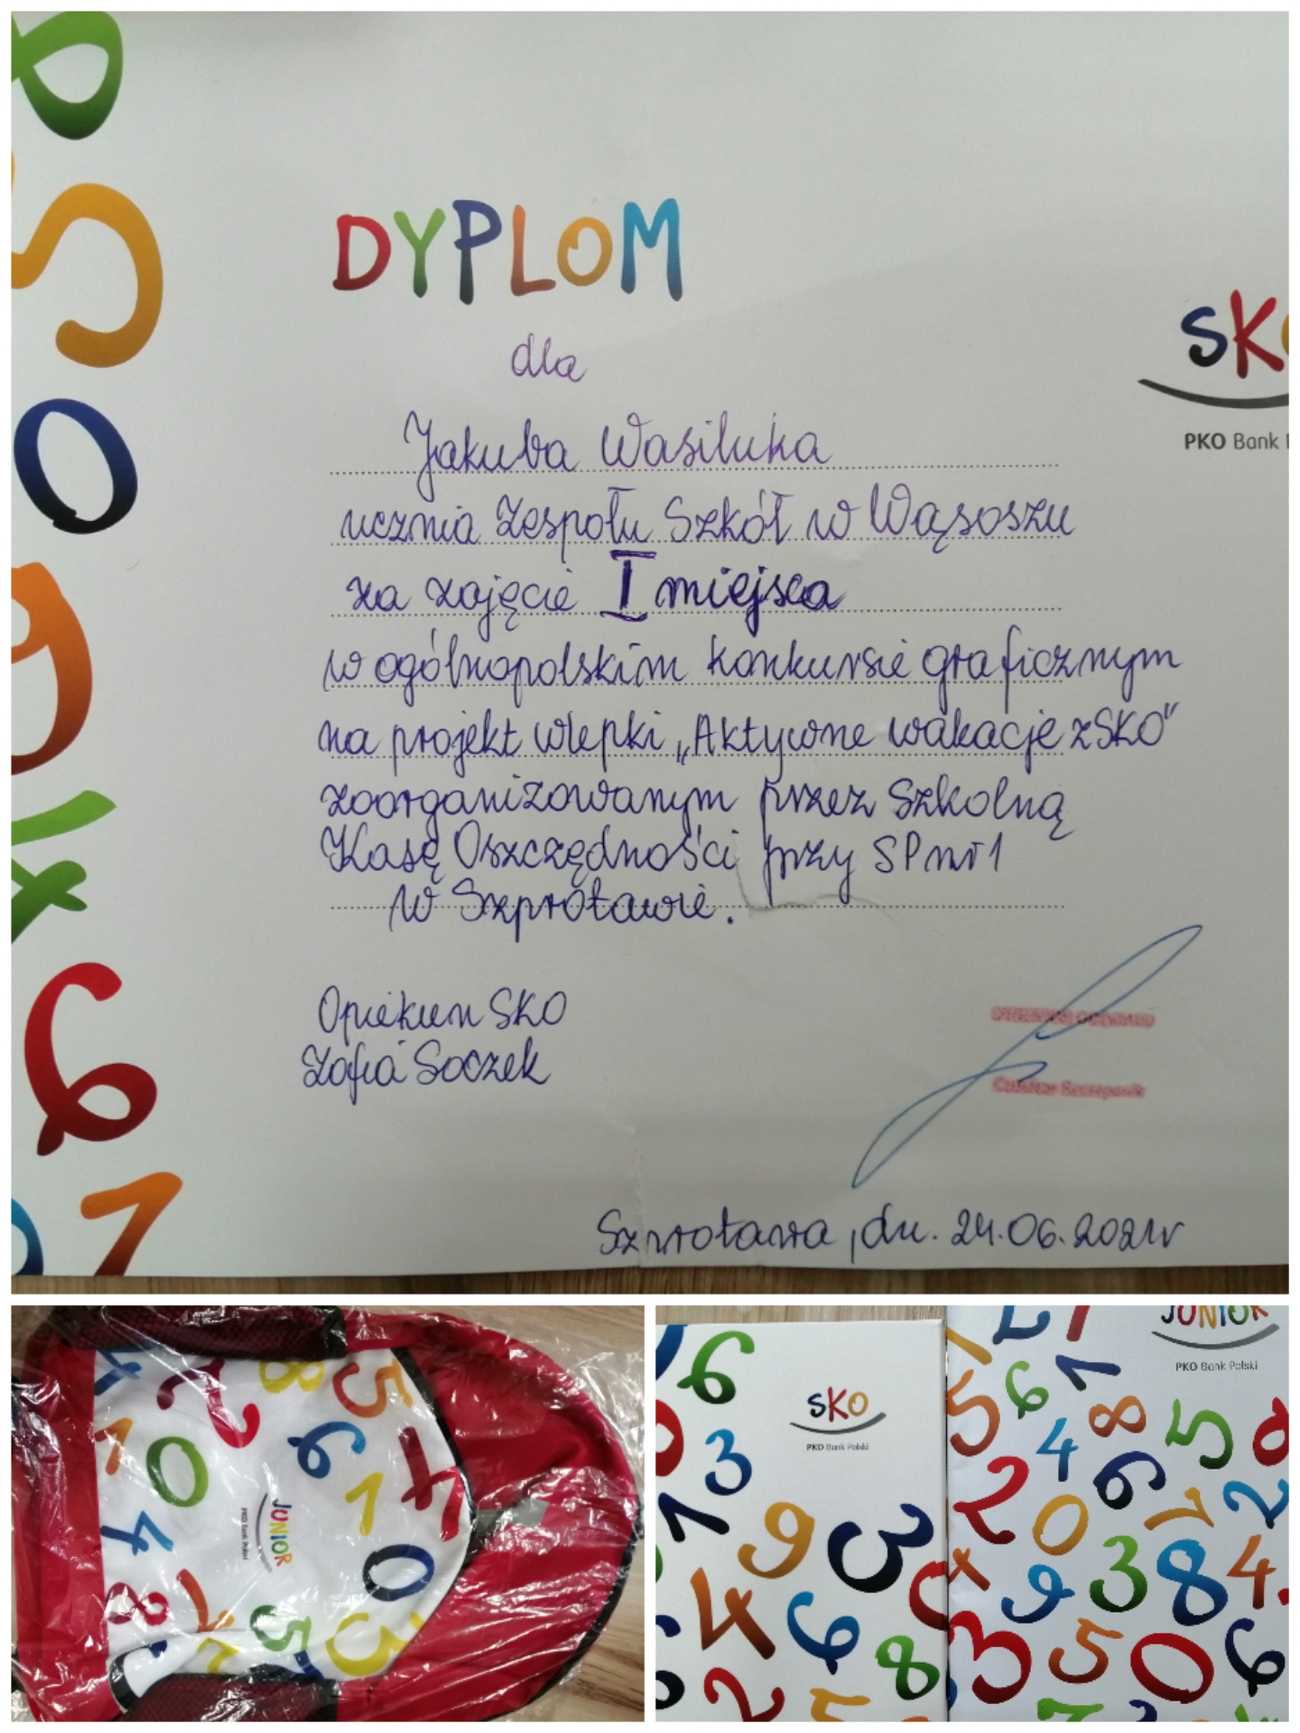 DYPLOM
dla
SKO
PKO Bank
Jakuba Wasiluka
ucznia Zespołu Szkół w Wąsoszu
za zajęcie I miejsca
w ogólnopolskim konkursie graficznym
na projekt wlepki „Aktywne wakacje z SKO"
zoorganizowanym przez Szkolną
Kasę Oszczędności przy SP nr 1
w Szprotawie.
Opiekun SKO
Zofia Soczek
Szprotawa, dn. 24.06.2021r
8 5 6 2 0 1 7 4 1 0 4 8 7 5 3
JUNIOR
PKO Bank Polski
6
SKO
PKO Bank Polski
3
1 9 3
4 6 8
2 5
JUNIOR
PKO Bank Polski
1 2 1
5 6 1 8 5
4 6
2 0 7 2
9 3 8 4
3 5 0 6